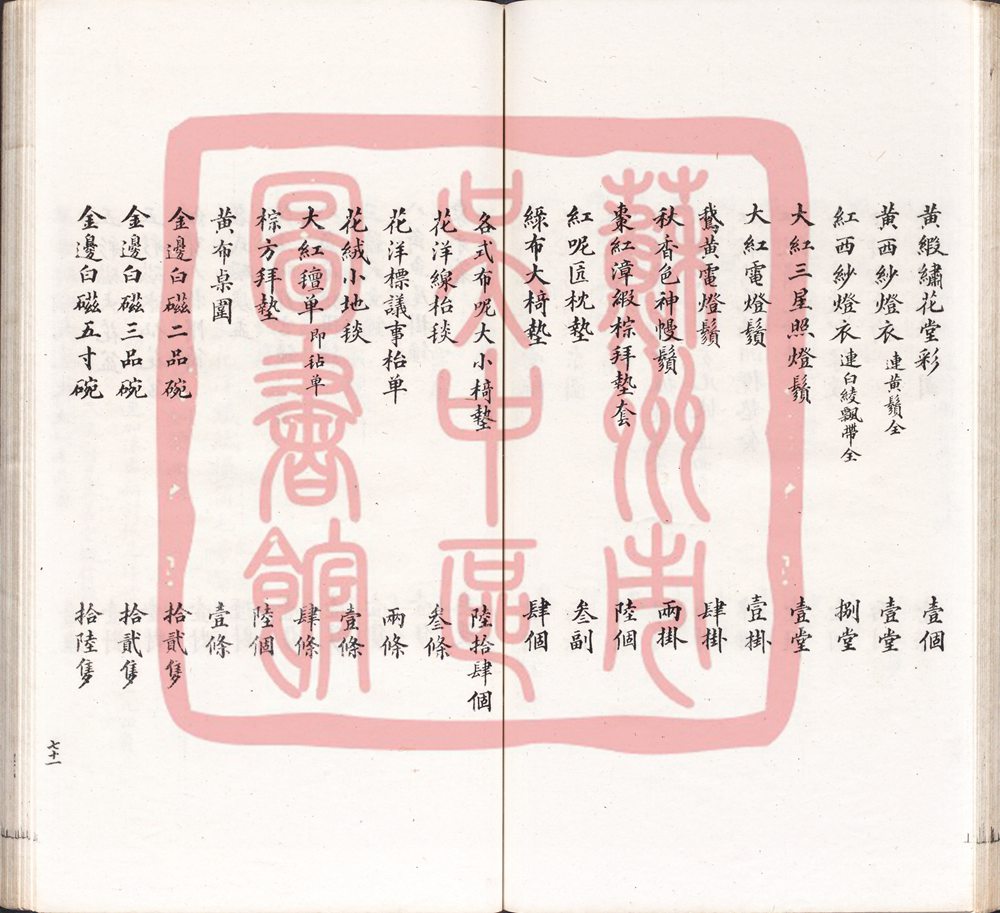 黃緞繡花堂彩 壹個
黃西紗燈衣 連黃鬚全 壹堂
紅西紗燈衣 連白綾飄帶全 捌堂
大紅三星照燈鬚 壹堂
大紅電燈鬚 壹掛
鵝黃電燈鬚 肆掛
秋香色神幔鬚 兩掛
棗紅漳緞棕拜墊套 陸個
紅呢匟枕墊 叁副
綠布大椅墊 肆個
各式布呢大小椅墊 陸拾肆個
花洋線枱毯 叁條
花洋標議事枱单 兩條
花絨小地毯 壹條
大紅氊单 即毡单 肆條
棕方拜墊 陸個
黃布桌圍 壹條
金邊白磁二品碗 拾貳隻
金邊白磁三品碗 拾貳隻
金邊白磁五寸碗 拾陸隻
七十一
蘇州市
吳中區
圖書館